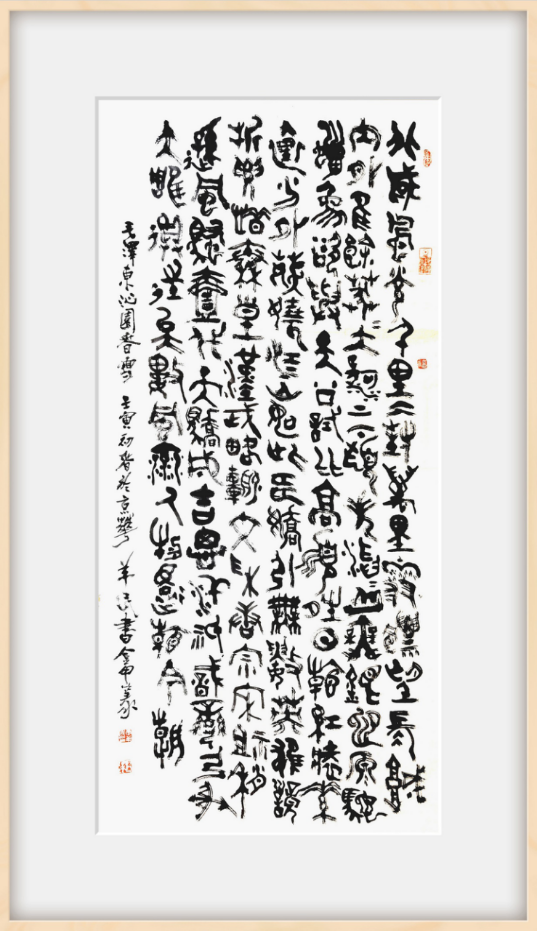 北國風光千里冰封萬里雪飄望長城
內外惟餘莽莽大河上下頓失滔滔山舞銀蛇原馳
蠟象欲與天公試比高須晴日看紅裝素
裹分外妖嬈江山如此多嬌引無數英雄競
折腰惜秦皇漢武略輸文采唐宗宋祖稍
遜風騷一代天驕成吉思汗只識彎弓射
大雕俱往矣數風流人物還看今朝
毛澤東沁園春雪 壬寅初春於京 書金甲篆